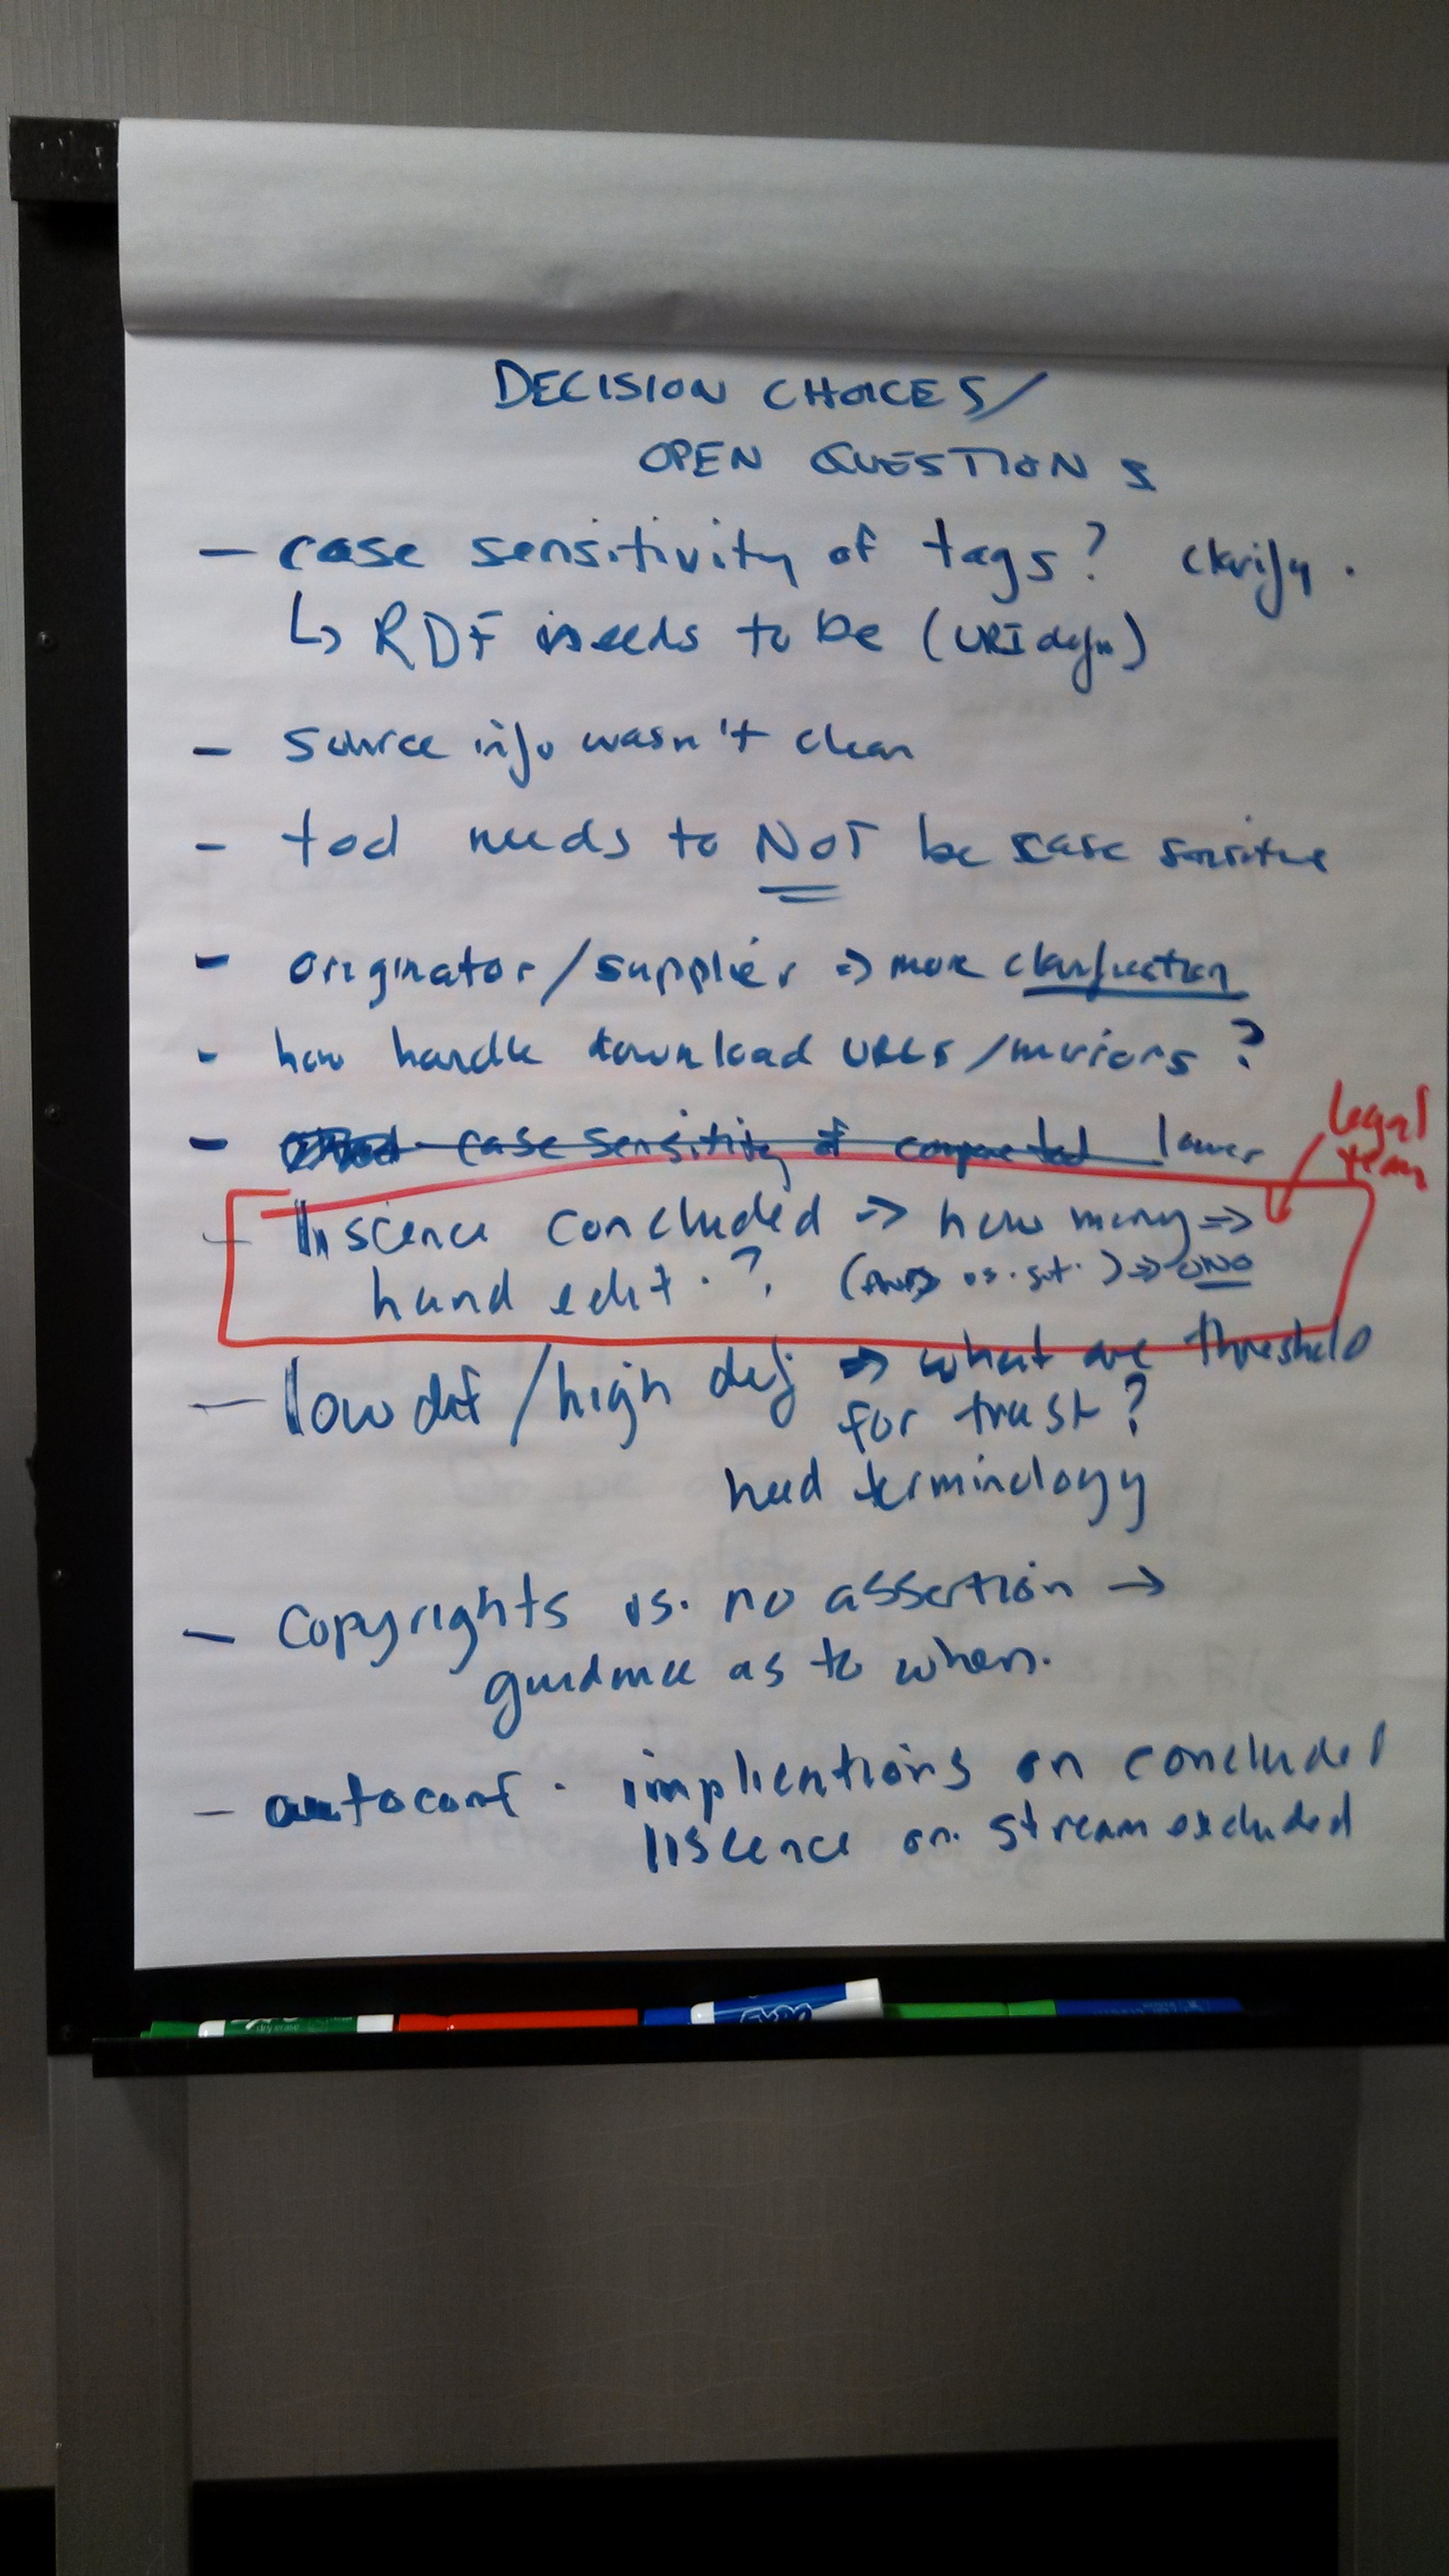 DECISION CHOICES/
OPEN QUESTIONS
- case sensitivity of tags? clarify.
↳ RDF needs to be (URI defn)
- source info wasn't clear
- tool needs to NOT be case sensitive
- originator/supplier => more clarification
- how handle download URLs/mirrors ?
- case sensitivity of lower
legal
team
- liscence concluded => how many =>
hand edit . ? ( vs. ) =>
- low def /high def => what are threshold
for trust?
need terminology
- copyrights vs. no assertion →
guidance as to when.
- autoconf . implications on concluded
liscence on. stream excluded
EXPO
dry erase